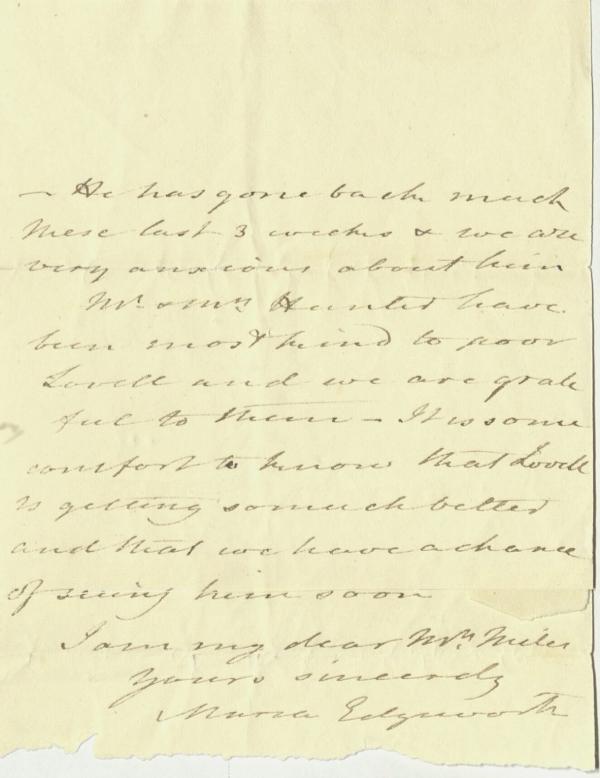 — He has gone back much
these last 3 weeks & we are
very anxious about him
Mr. & Mrs. Hunter have
been most kind to poor
Lovell and we are grate
ful to them — It is some
comfort to know that Lovell
is getting so much better
and that we have a chance
of seeing him soon
I am my dear Mrs. Miles
Yours sincerely
Maria Edgeworth